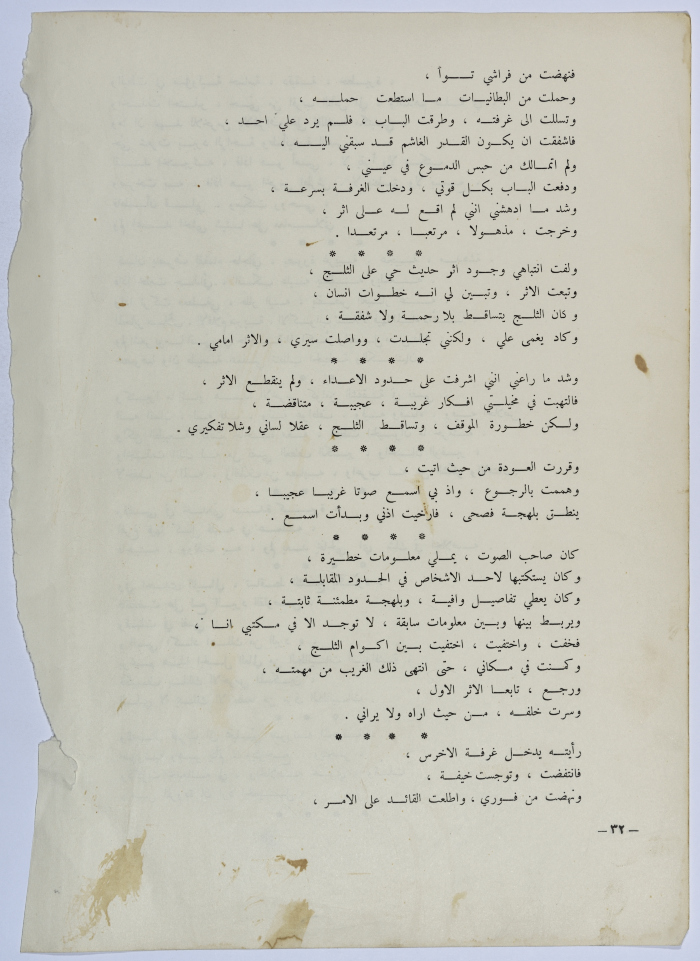 فنهضت من فراشي تـواً ،
وحملت من البطانيـات مـا استطعت حملـه ،
وتسللت الى غرفتـه ، وطرقت البـاب ، فلـم يرد علي احـد ،
فاشفقت ان يكـون القـدر الغاشم قـد سبقني اليـه ،
ولم اتمـالك من حبس الدمـوع في عيـني ،
ودفعت البـاب بكـل قوتي ، ودخلت الغرفـة بسرعـة ،
وشد مـا ادهشني انني لم اقـع لـه عـلى اثر ،
وخرجت ، مذهـولا ، مرتعبـا ، مرتعـدا .
* * * *
ولفت انتباهي وجـود اثر حديث حي على الثلـج ،
وتبعت الاثر ، وتبـين لي انـه خطـوات انسان ،
وكان الثلـج يتساقـط بلا رحمـة ولا شفقـة ،
وكاد يغمى علي ، ولكنني تجلـدت ، وواصلت سيري ، والاثر امامي .
* * * *
وشد ما راعني انني اشرفت على حـدود الاعـداء ، ولم ينقطـع الاثر ،
فالتهبت في مخيلـتي افـكار غريبـة ، عجيبـة ، متناقضـة ،
ولـكن خطـورة الموقف ، وتساقـط الثلـج ، عقلا لساني وشلا تفكيري .
* * * *
وقررت العـودة من حيث اتيت ،
وهممت بالرجـوع ، واذ بي اسمـع صوتا غريبـا عجيبـا ،
ينطـق بلهجـة فصحى ، فارخيت اذني وبـدأت اسمـع .
* * * *
كان صاحب الصوت ، يمـلي معلـومات خطـيرة ،
وكان يستكتبها لاحـد الاشخاص في الحـدود المقابلـة ،
وكان يعطي تفاصيـل وافيـة ، وبلهجـة مطمئنـة ثابتـة ،
ويربـط بينها وبـين معلومات سابقـة ، لا توجـد الا في مـكتبي انـا ،
فخفت ، واختفيت ، اختفيت بـين اكـوام الثلـج ،
وكمـنت في مـكاني ، حتى انتهى ذلك الغريب من مهمتـه ،
ورجـع ، تابعـا الاثر الاول ،
وسرت خلفـه ، مـن حيث اراه ولا يراني .
* * * *
رأيتـه يدخـل غرفـة الاخرس ،
فانتفضت ، وتوجست خيفـة ،
ونهضت من فـوري ، واطلعت القائـد على الامـر ،
— ٣٢ —